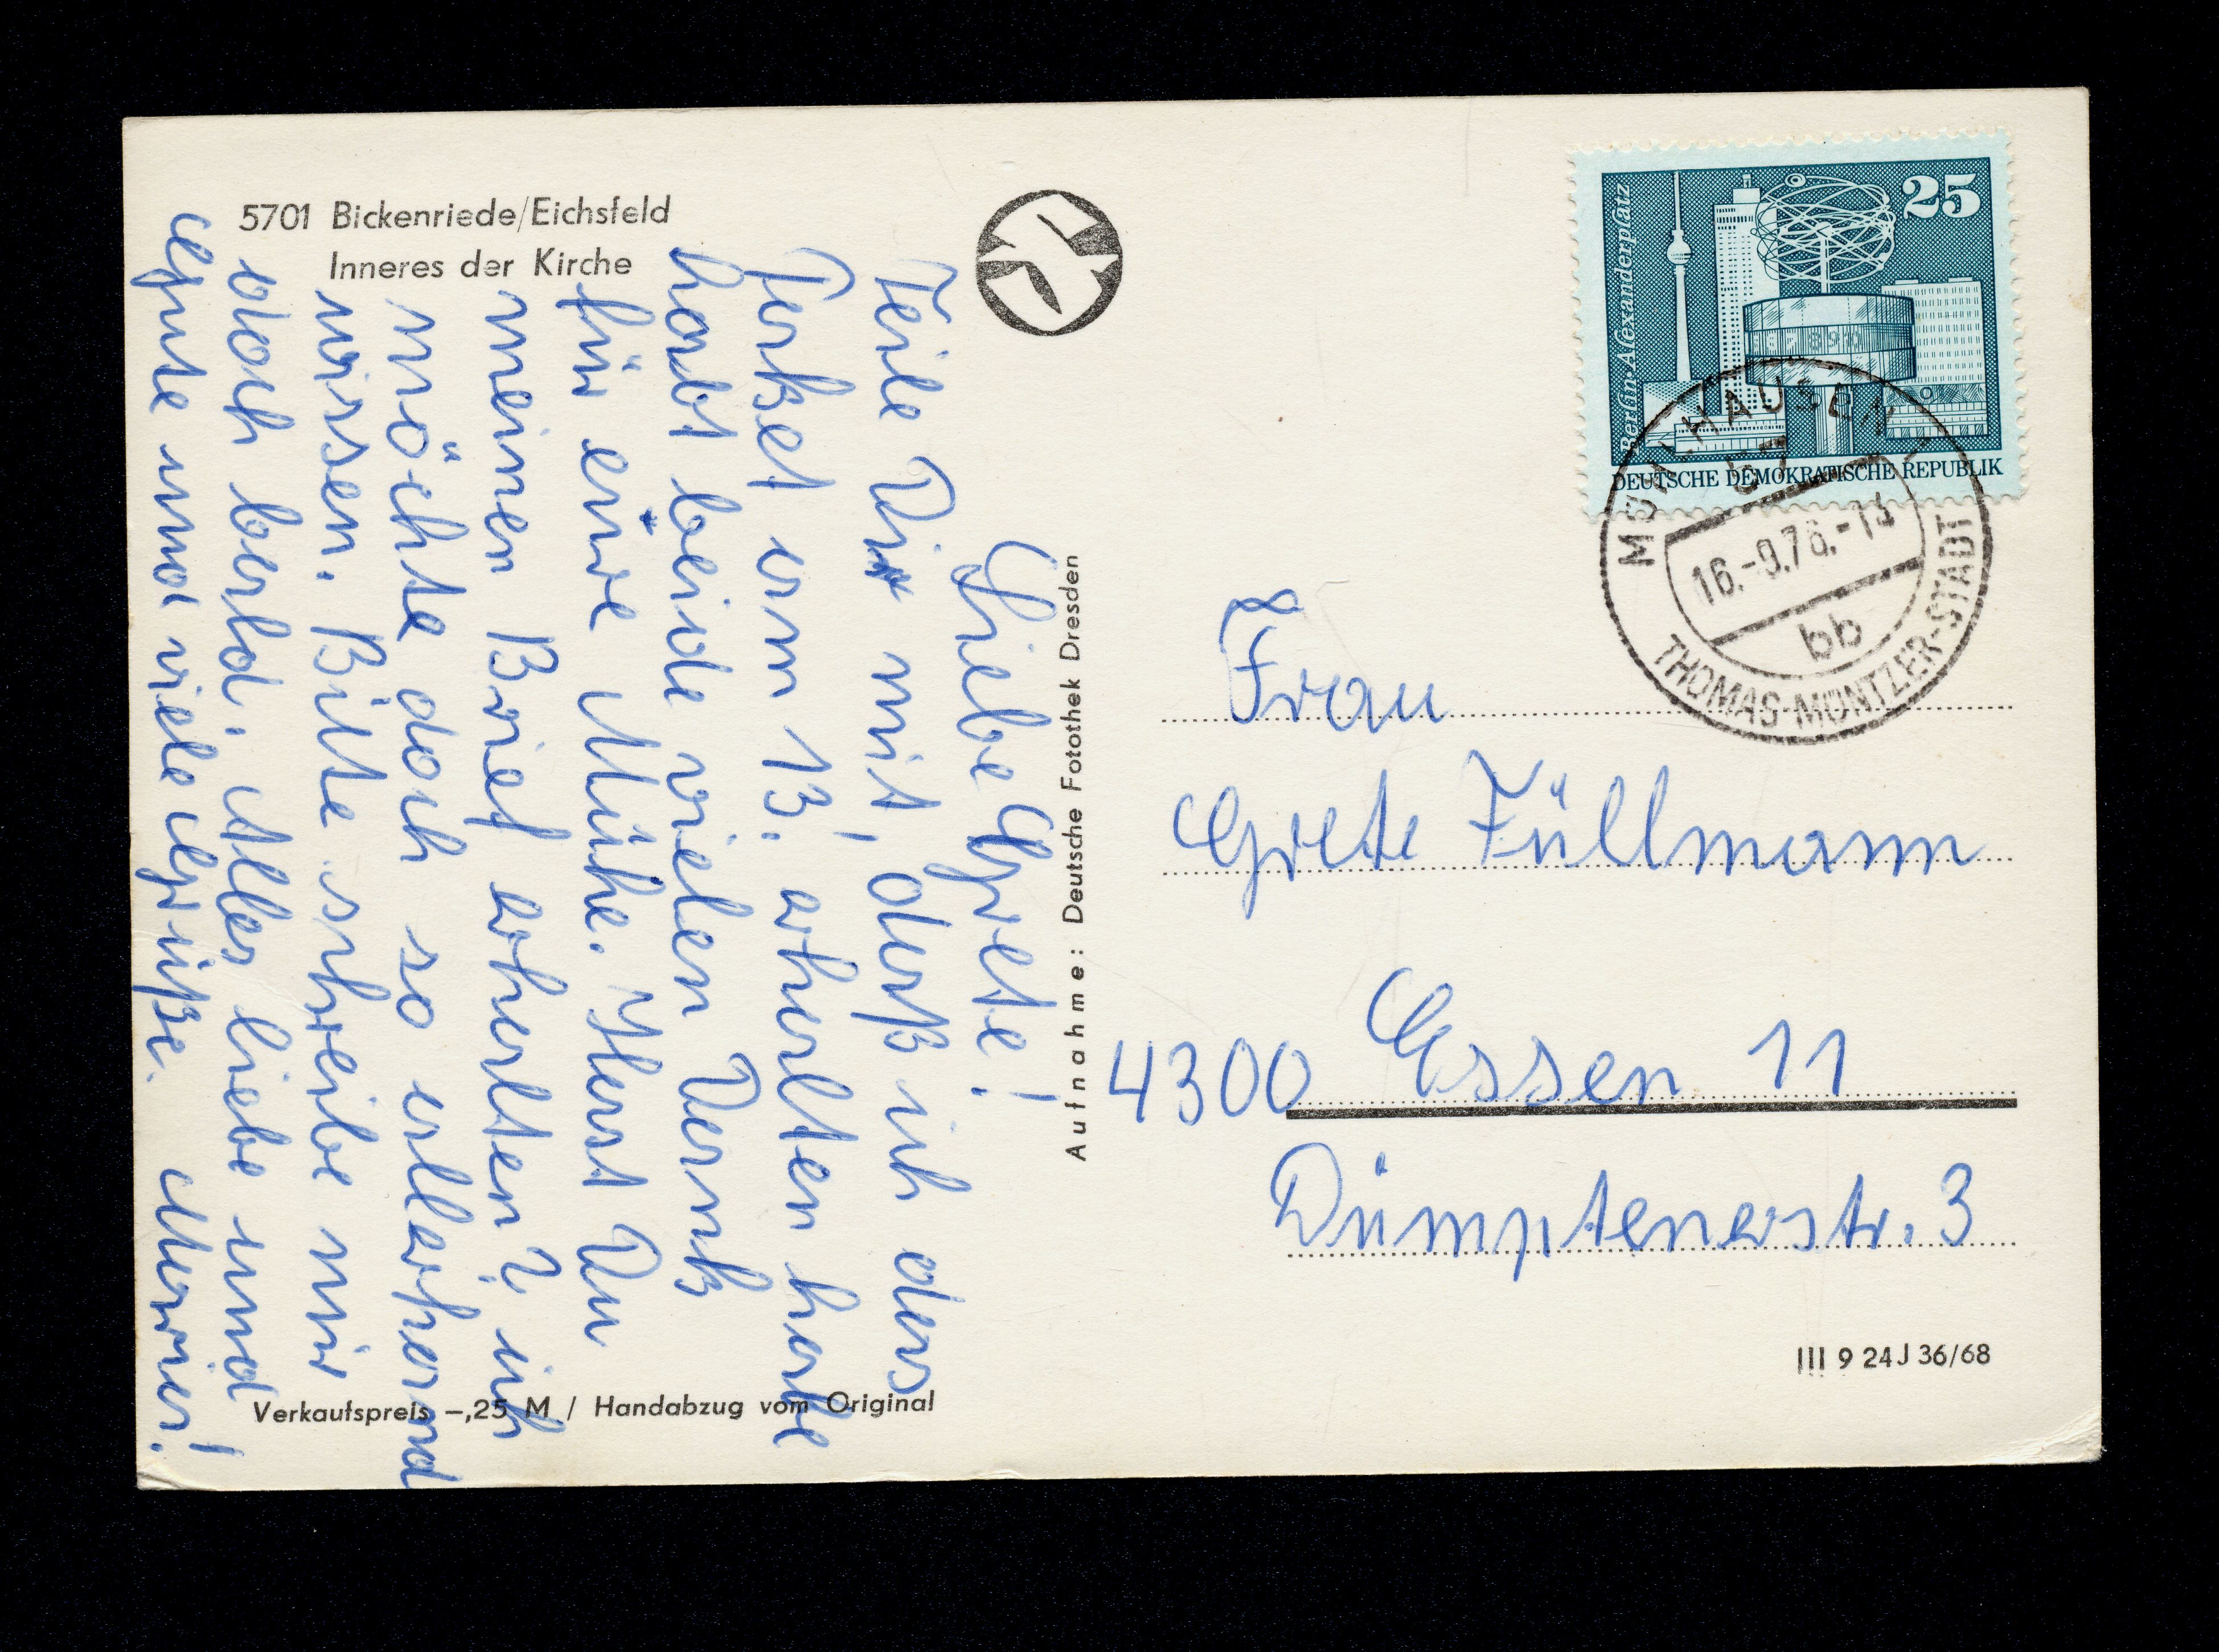 5701 Bickenriede/Eichsfeld
Inneres der Kirche
Liebe Grete!
Teile Dir mit, daß ich das
Paket am 13. erhalten habe
habt beide vielen Dank
für eure Mühe. Hast Du
meinen Brief erhalten? ich
möchte doch so allerhand
wissen. Bitte schreibe mir
doch bald. Alles liebe und
gute und viele Grüße. Maria!
Verkaufspreis –,25 M / Handabzug vom Original
Aufnahme: Deutsche Fotothek Dresden
25
Berlin, Alexanderplatz
DEUTSCHE DEMOKRATISCHE REPUBLIK
MÜHLHAUSEN 1
57
16.-9.76.-13
bb
THOMAS-MÜNTZER-STADT
Frau
Grete Füllmann
4300 Essen 11
Dümptenerstr. 3
III 9 24 J 36/68